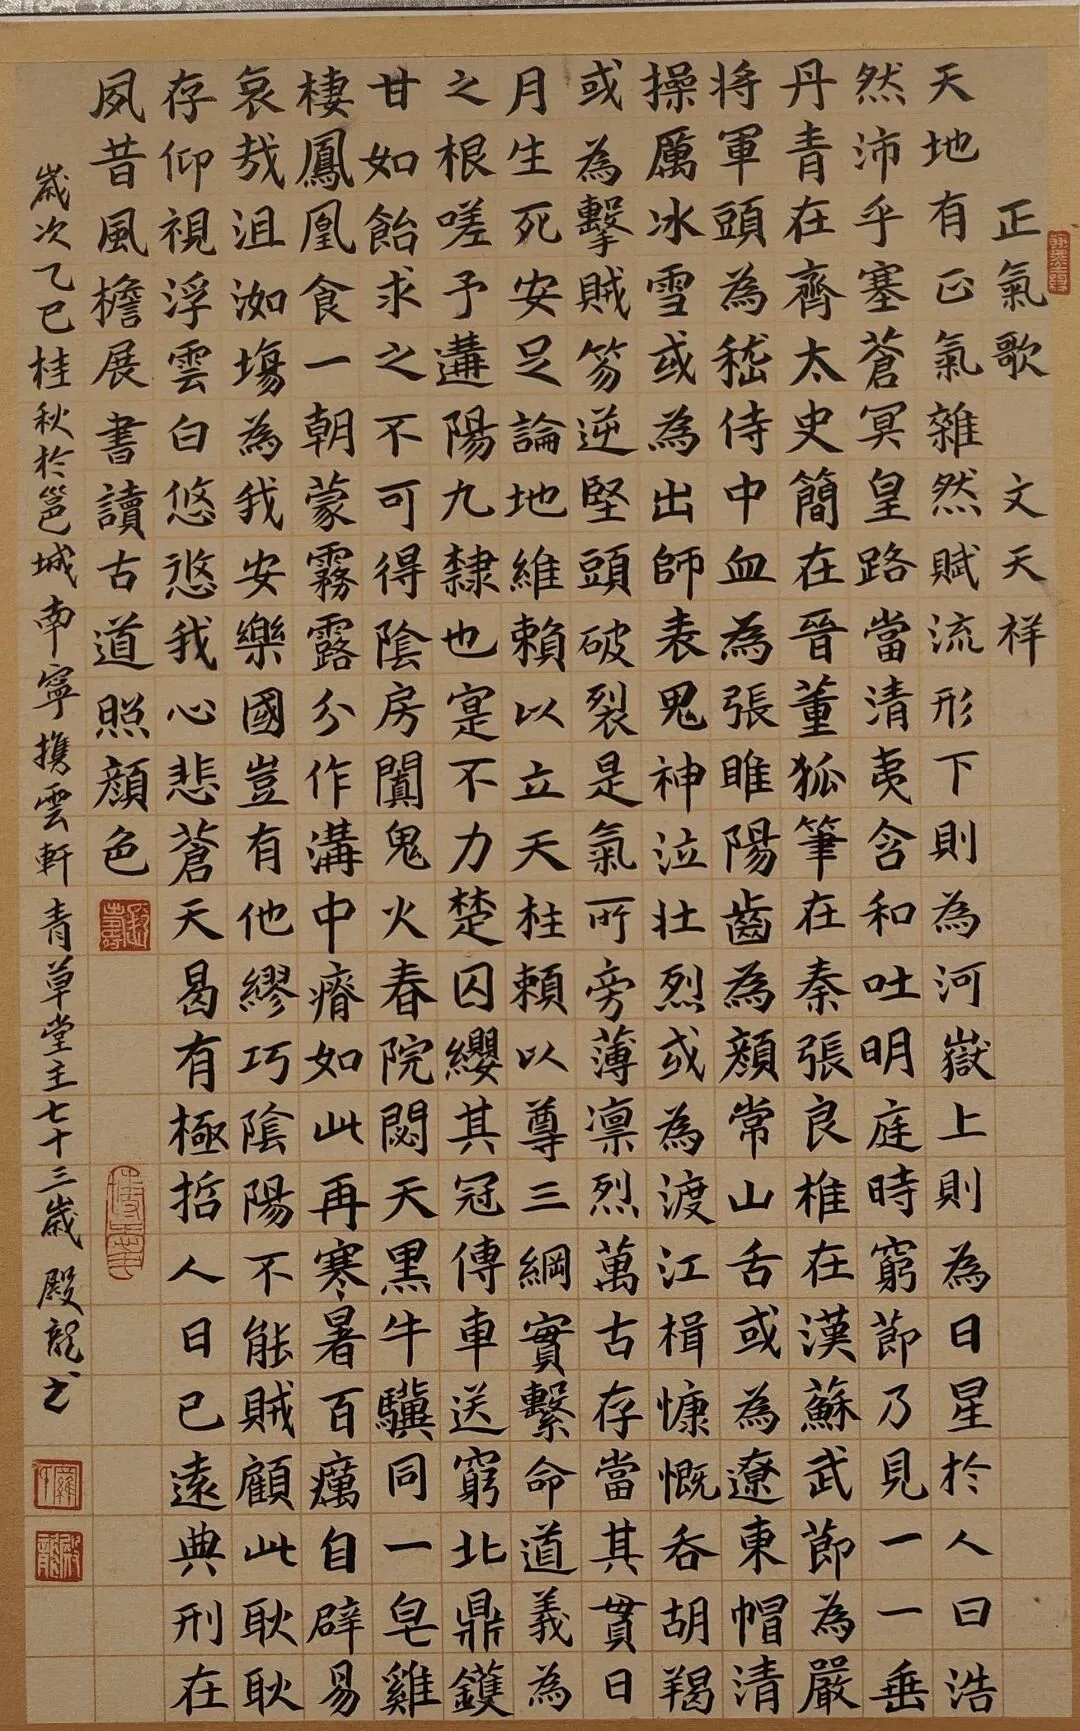 正氣歌 文天祥
天地有正氣雜然賦流形下則為河嶽上則為日星於人曰浩
然沛乎塞蒼冥皇路當清夷含和吐明庭時窮節乃見一一垂
丹青在齊太史簡在晉董狐筆在秦張良椎在漢蘇武節為嚴
將軍頭為嵇侍中血為張睢陽齒為顏常山舌或為遼東帽清
操厲冰雪或為出師表鬼神泣壯烈或為渡江楫慷慨吞胡羯
或為擊賊笏逆竪頭破裂是氣所旁薄凛烈萬古存當其貫日
月生死安足論地維賴以立天柱賴以尊三綱實繫命道義為
之根嗟予遘陽九隸也寔不力楚囚纓其冠傳車送窮北鼎鑊
甘如飴求之不可得陰房闐鬼火春院閟天黑牛驥同一皂雞
棲鳳凰食一朝蒙霧露分作溝中瘠如此再寒暑百癘自辟易
哀哉沮洳場為我安樂國豈有他繆巧陰陽不能賊顧此耿耿
存仰視浮雲白悠悠我心悲蒼天曷有極哲人日已遠典刑在
夙昔風檐展書讀古道照顏色
歲次乙巳桂秋於邕城南寧携雲軒青草堂主七十三歲殿龍书
殿龍